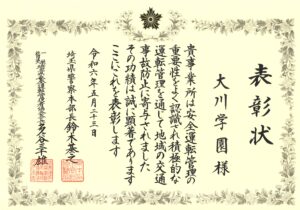 表彰状
大川学園様
貴事業所は安全運転管理の
重要性をよく認識され積極的な
運転管理を通して地域の交通
事故防止に寄与されました
その功績は誠に顕著であります
ここにこれを表彰します
令和六年五月二十三日
埼玉県警察本部長 鈴木基之